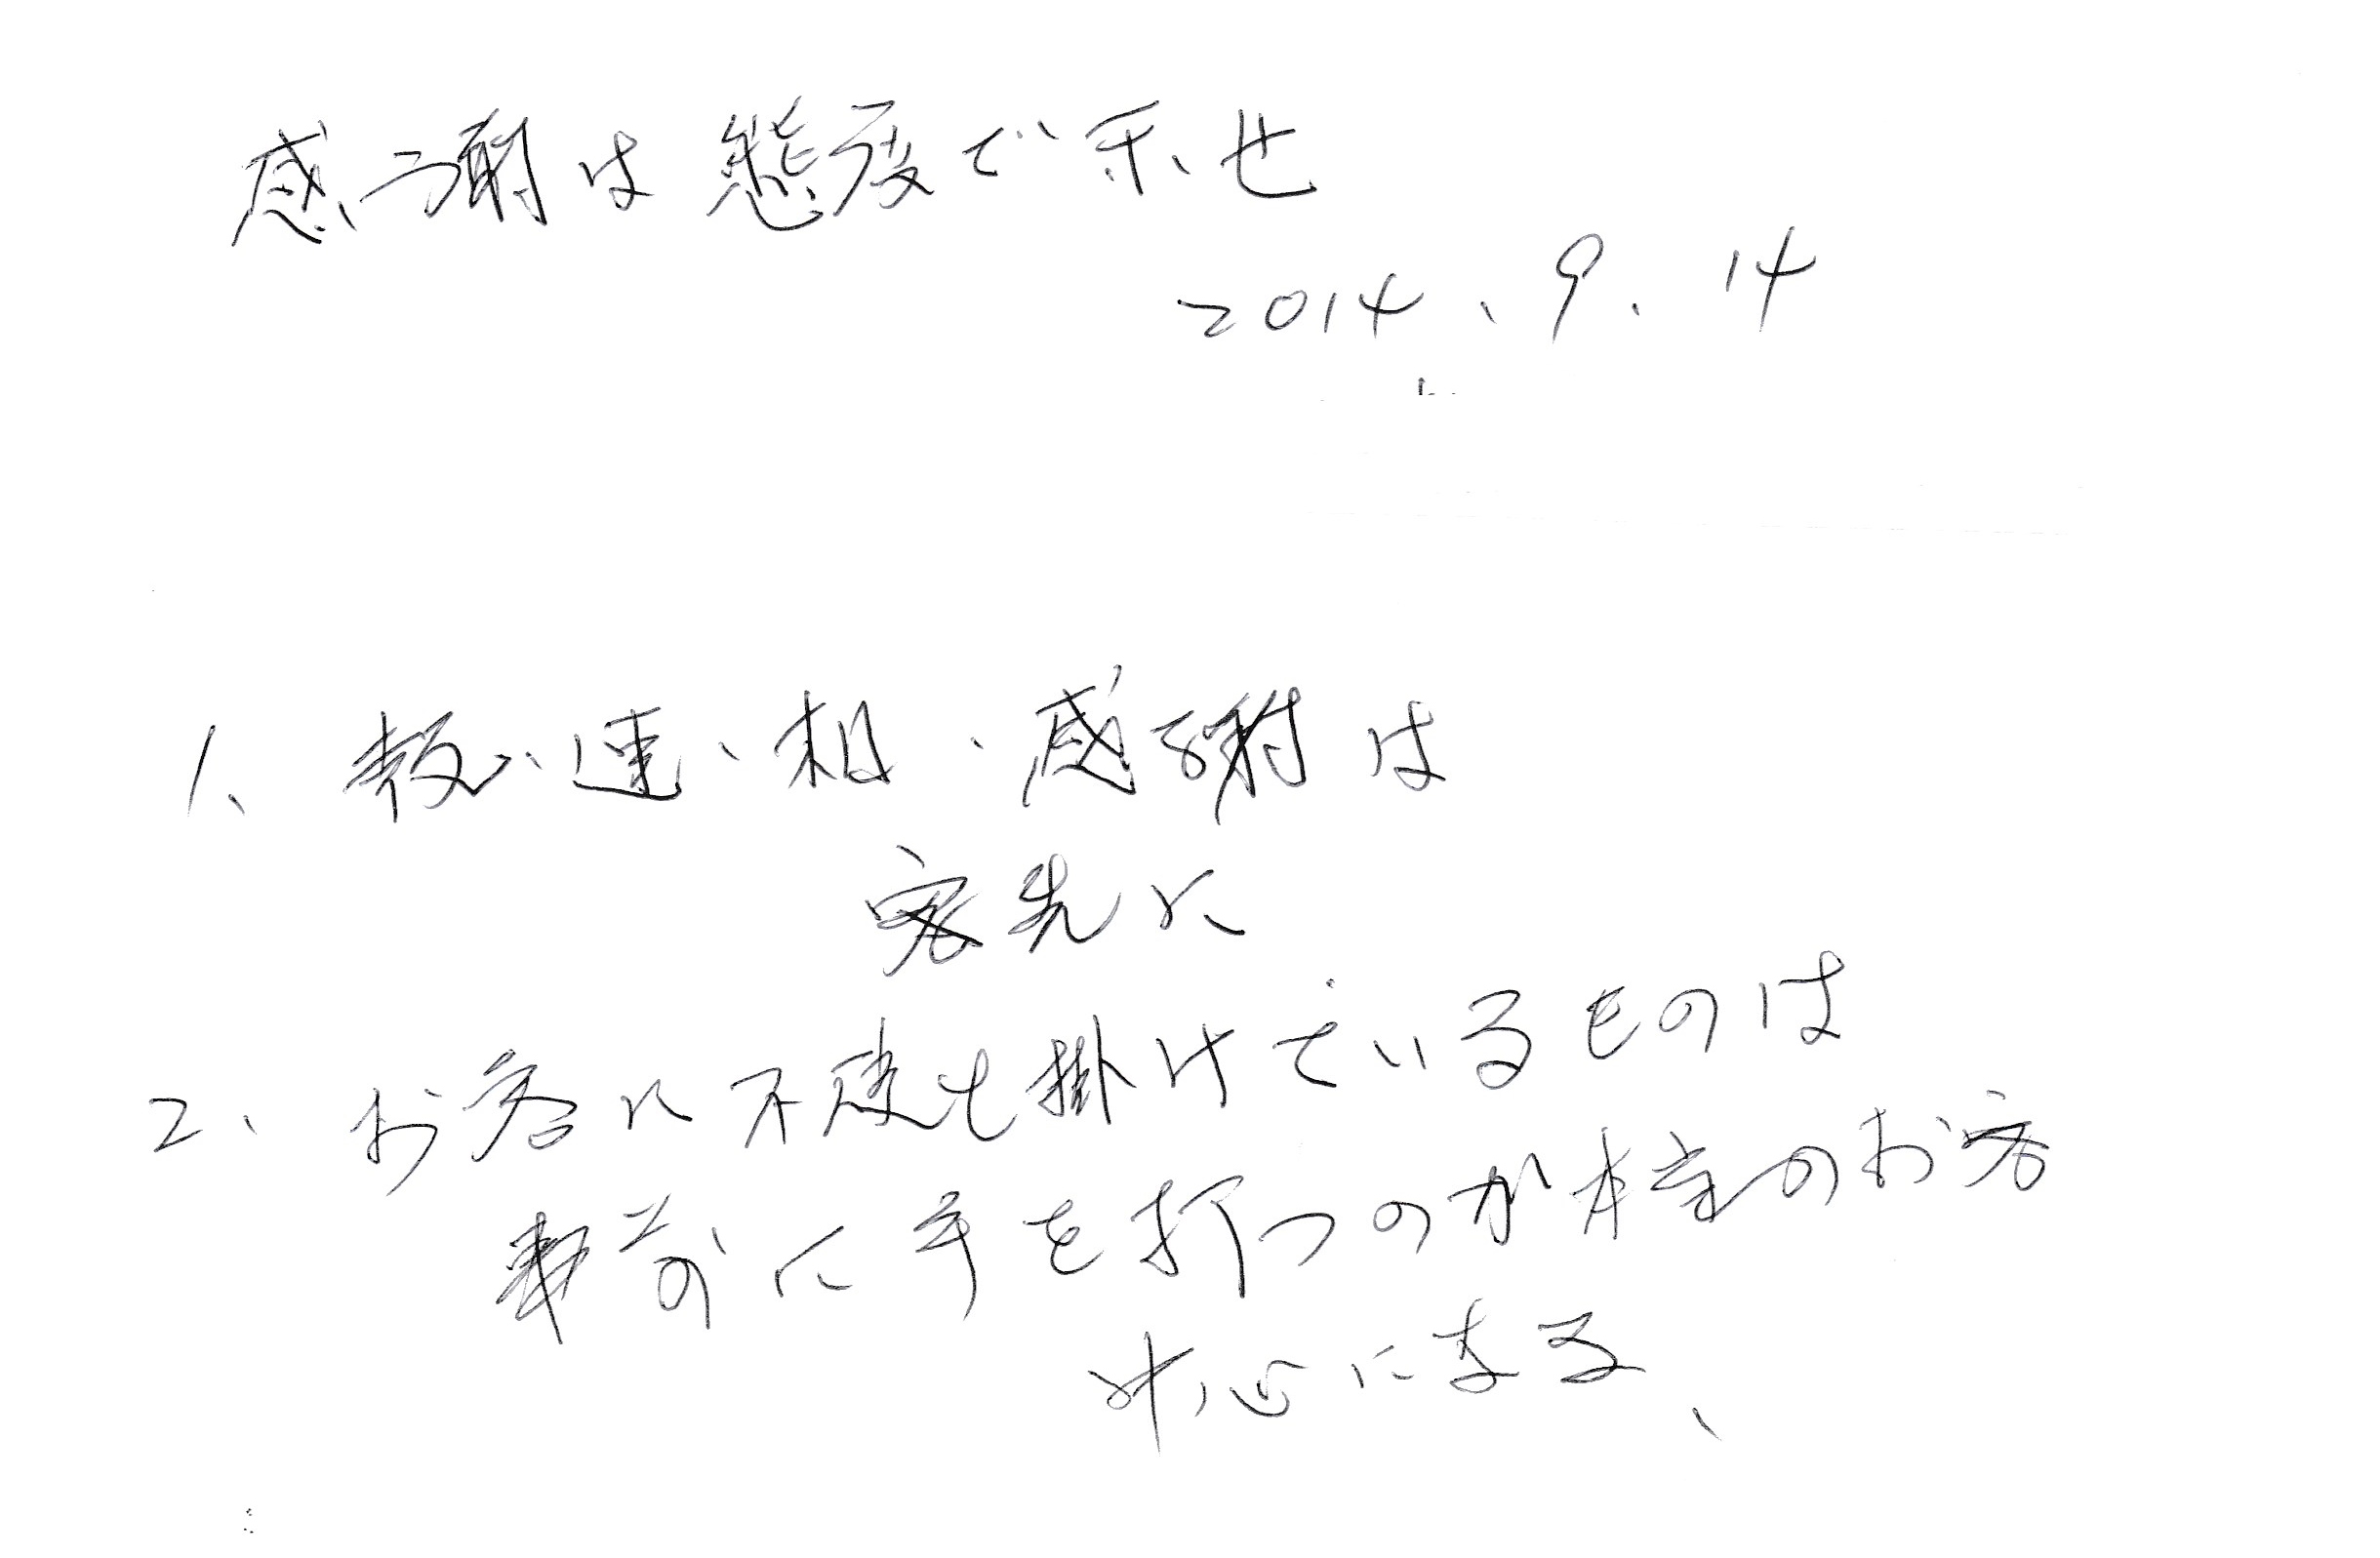 感謝は態度で示せ
2014、9、14
1、報、連、相、感謝は
客先に
2、お客に不便を掛けているものは
事前に手を打つのが本当のお客
中心になる、